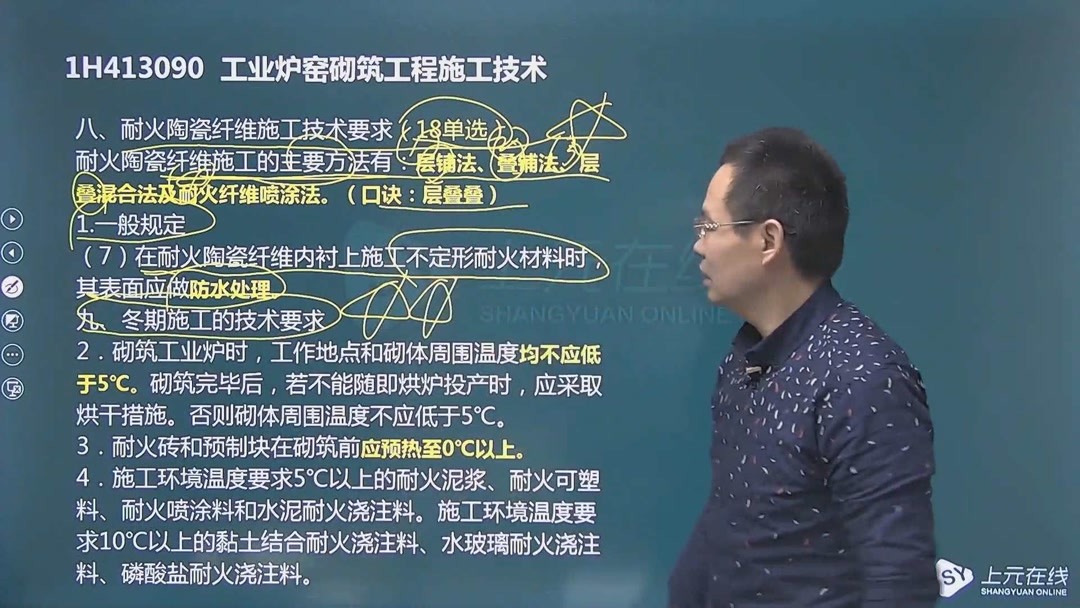 1H413090 工业炉窑砌筑工程施工技术
八、耐火陶瓷纤维施工技术要求（18单选）
耐火陶瓷纤维施工的主要方法有：层铺法、叠铺法、层
叠混合法及耐火纤维喷涂法。（口诀：层叠叠）
1.一般规定
（7）在耐火陶瓷纤维内衬上施工不定形耐火材料时，
其表面应做防水处理。
九、冬期施工的技术要求
2．砌筑工业炉时，工作地点和砌体周围温度均不应低
于5℃。砌筑完毕后，若不能随即烘炉投产时，应采取
烘干措施。否则砌体周围温度不应低于5℃。
3．耐火砖和预制块在砌筑前应预热至0℃以上。
4．施工环境温度要求5℃以上的耐火泥浆、耐火可塑
料、耐火喷涂料和水泥耐火浇注料。施工环境温度要
求10℃以上的黏土结合耐火浇注料、水玻璃耐火浇注
料、磷酸盐耐火浇注料。
上元在线
SHANGYUAN ONLINE
SY 上元在线
SHANGYUAN ONLINE